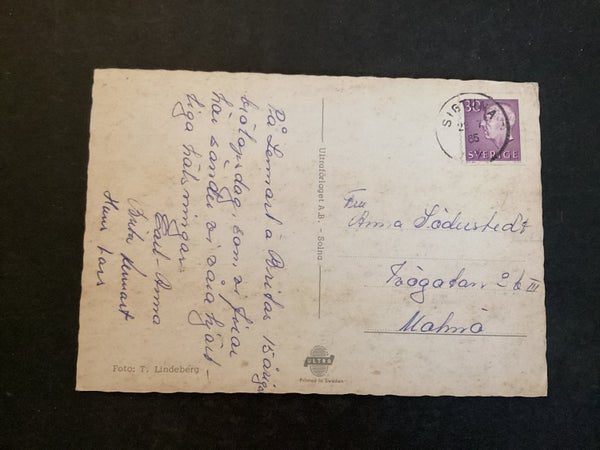 På Lennart å Britas 15åriga
bröllopsdag, som vi firar
här sänder vi våra hjärt-
liga hälsningar
Anna
Brita Lennart
Lars
Foto: T. Lindeberg
Ultraförlaget A.B. - Solna
ULTRA
Printed in Sweden
SIGTUNA
65
30
SVERIGE
Fru
Anna Söderstedt
6 III
Malmö